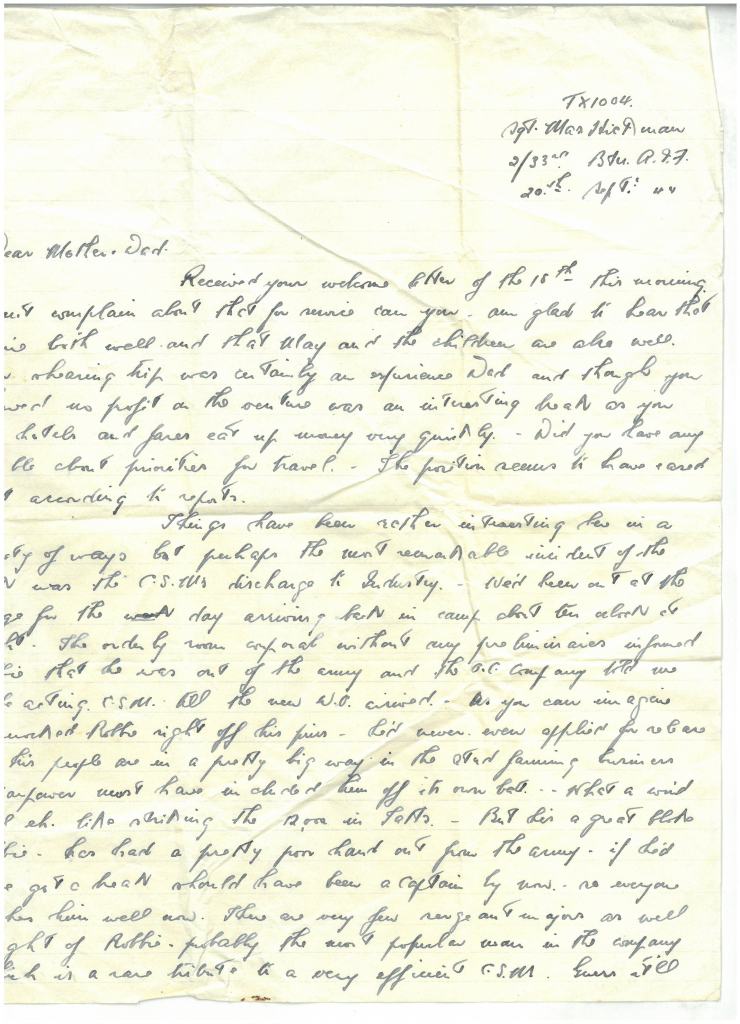 TX1004.
Sgt. Max Hickman
2/33rd Btn. A.I.F.
20th Sept: 44
ear Mother & Dad.
Received your welcome letter of the 18th this morning.
n't complain about that for service can you - am glad to hear that
both well and that May and the children are also well.
shearing trip was certainly an experience Dad and though you
wed no profit on the venture was an interesting break as you
hotels and fares eat up money very quickly. - Did you have any
ble about priorities for travel. - The position seems to have eased
according to reports.
Things have been rather interesting here in a
ty of ways but perhaps the most remarkable incident of the
was the C.S.M's discharge to Industry. - We'd been out at the
ge for the day arriving back in camp about ten oclock at
ht. The orderly room corporal without any preliminaries informed
bie that he was out of the army and the O.C. Company told me
acting C.S.M. till the new W.O. arrived. - As you can imagine
nocked Robbie right off his pins - he'd never even applied for release
his people are in a pretty big way in the stud farming business
anpower must have included him off its own bat. - - What a wind
eh. like striking the 12,000 in Tatts. - But he's a great bloke
bie - has had a pretty poor hand out from the army - if he'd
got a break should have been a captain by now. - so everyone
hes him well now. There are very few sergeant majors as well
ght of Robbie - probably the most popular man in the company
ich is a rare tribute to a very efficient C.S.M. Guess it'll